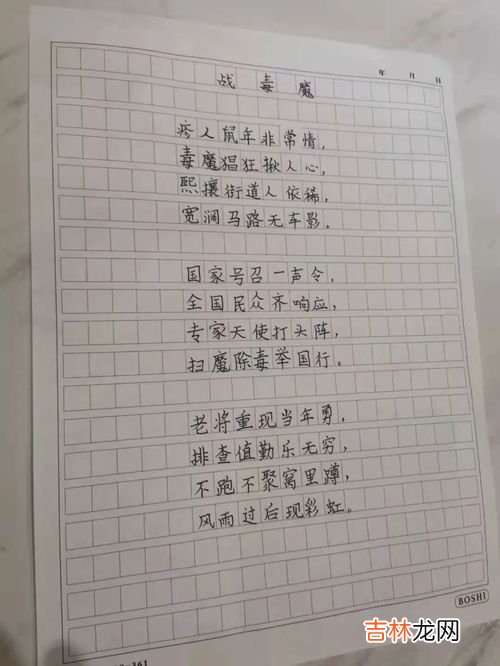 年 月 日
战毒魔
疼人鼠年非常情，
毒魔猖狂揪人心，
熙攘街道人依稀，
宽阔马路无车影。
国家号召一声令，
全国民众齐响应，
专家天使打头阵，
扫魔除毒举国行。
老将重现当年勇，
排查值勤乐无穷，
不跑不聚窝里蹲，
风雨过后现彩虹。
BOSHI
吉林龙网